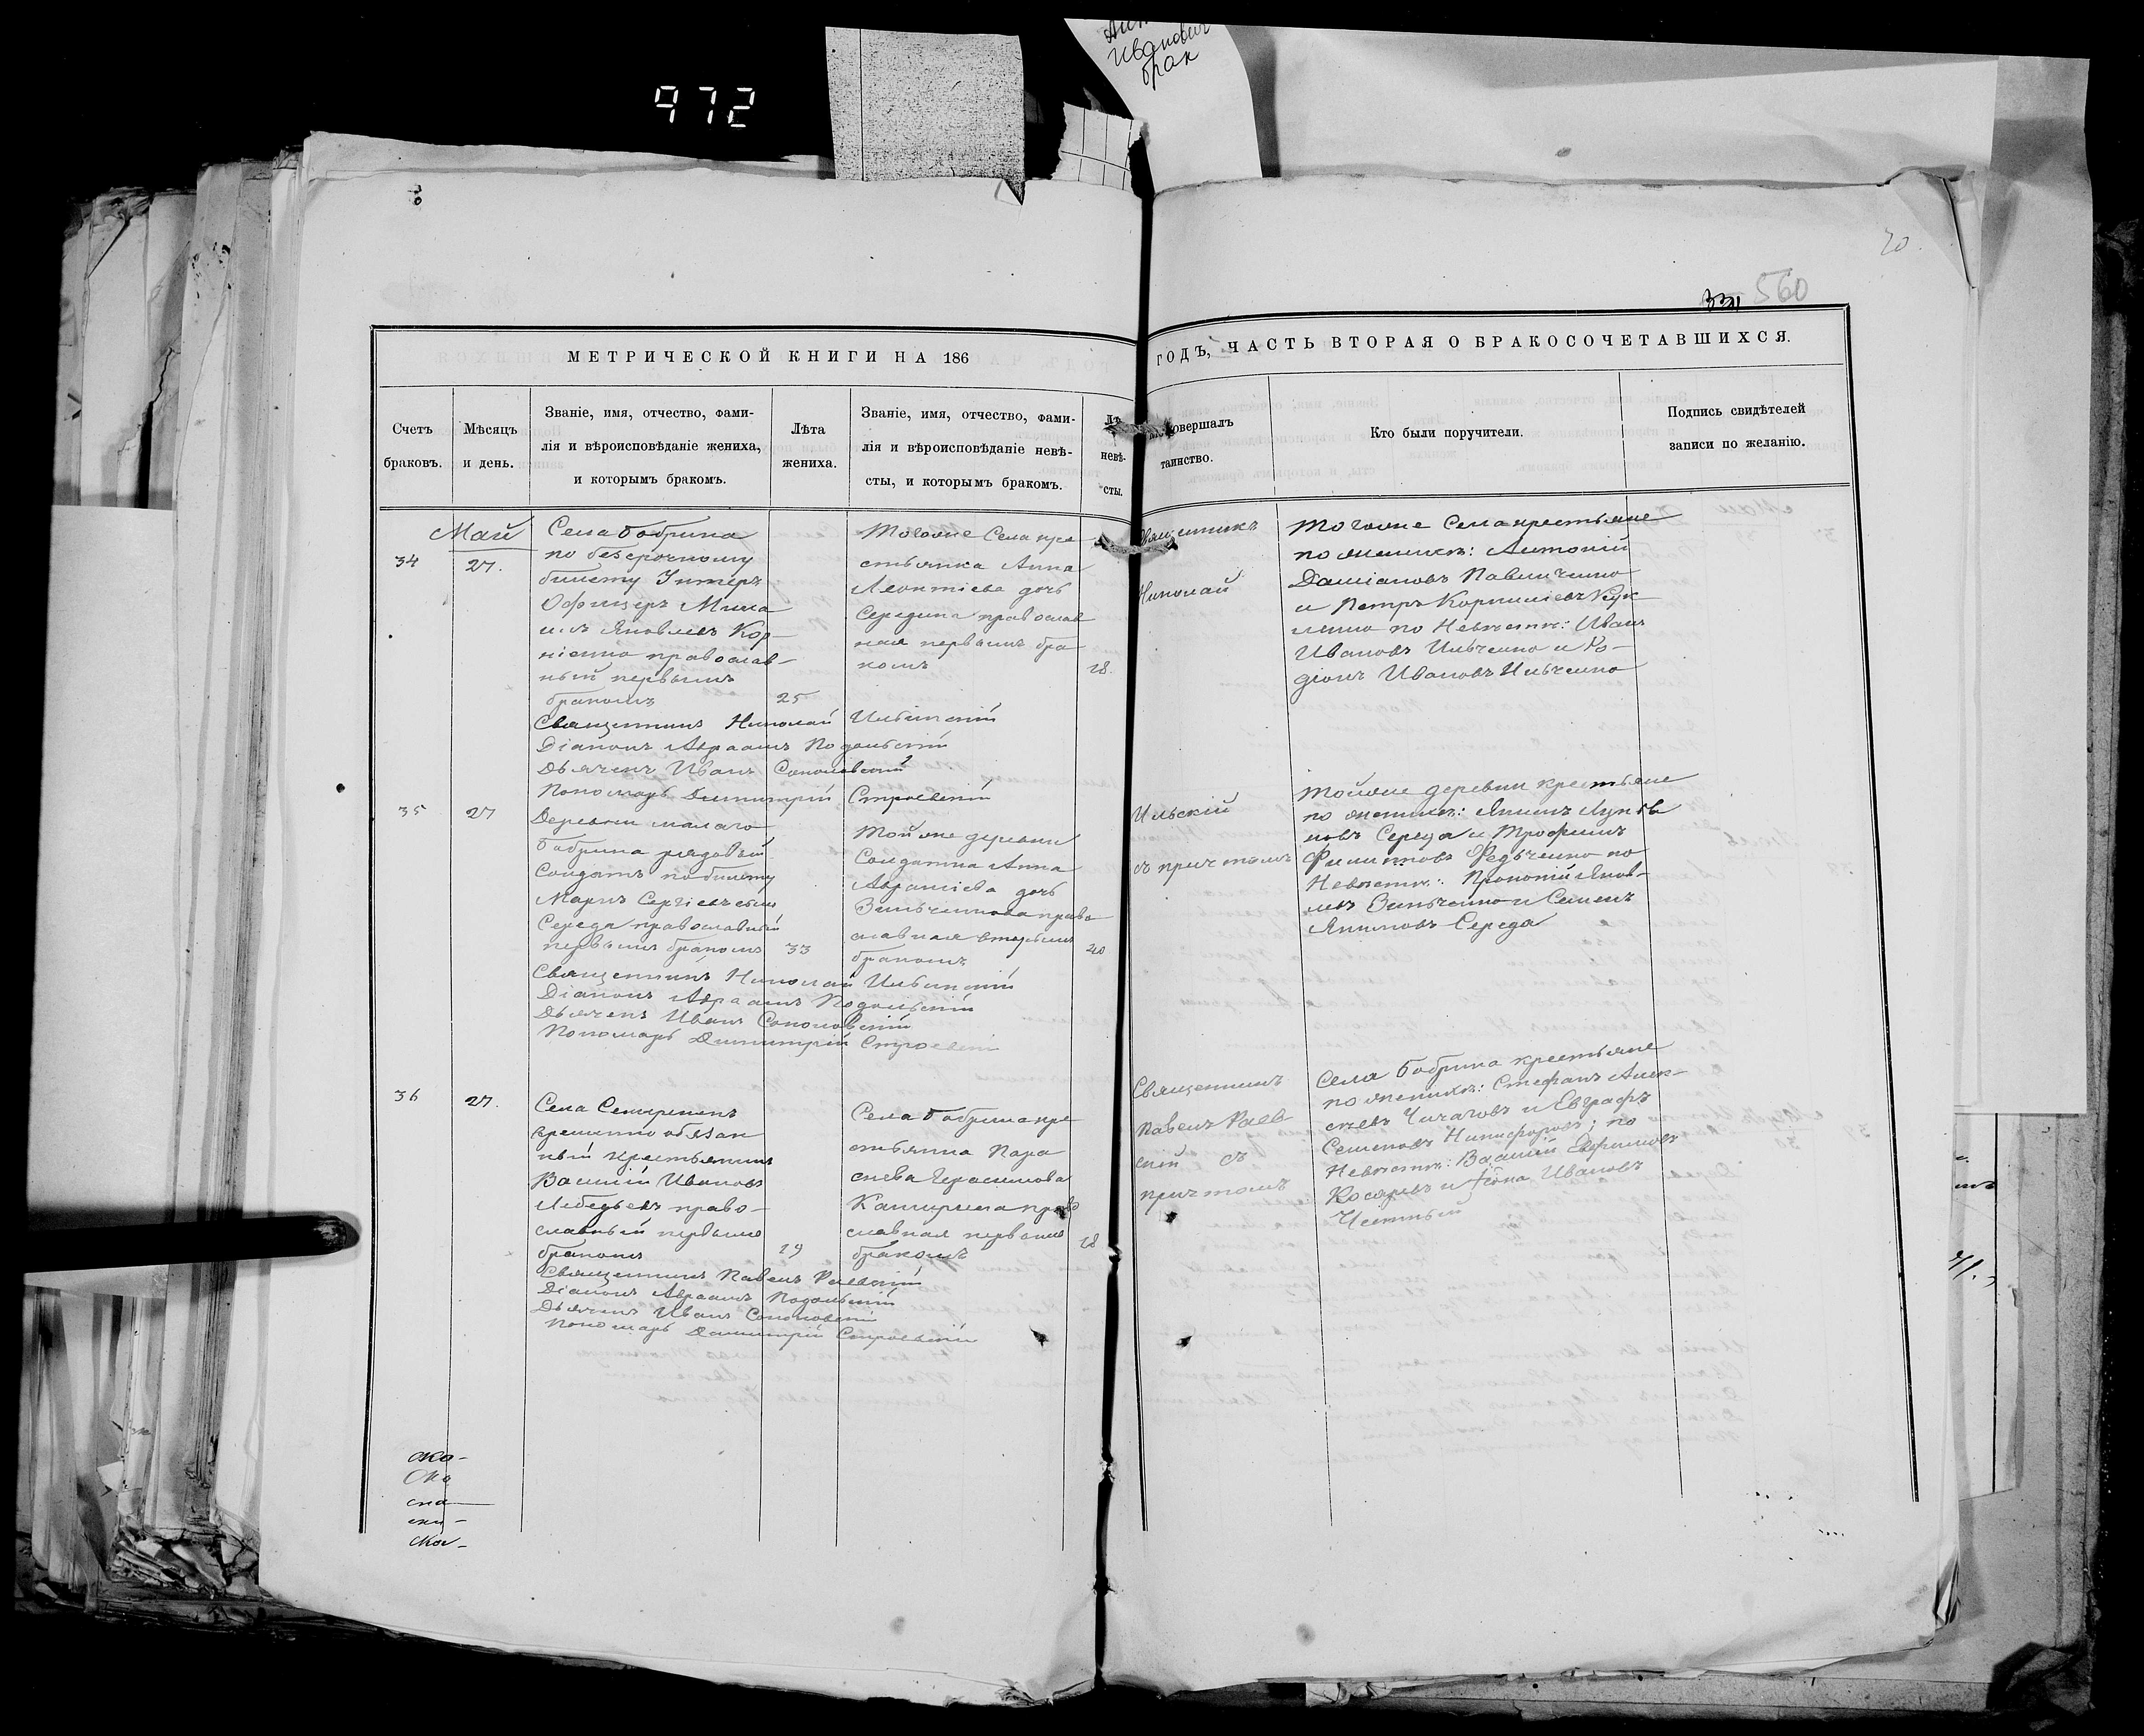 Иванович
брак
972
20.
560
МЕТРИЧЕСКОЙ КНИГИ НА 186
ГОДЪ, ЧАСТЬ ВТОРАЯ О БРАКОСОЧЕТАВШИХСЯ.
Счетъ
браковъ.
Мѣсяцъ
и день.
Званіе, имя, отчество, фами-
лія и вѣроисповѣданіе жениха,
и которымъ бракомъ.
Лѣта
жениха.
Званіе, имя, отчество, фами-
лія и вѣроисповѣданіе невѣ-
сты, и которымъ бракомъ.
Лѣ
невѣ-
сты.
совершалъ
таинство.
Кто были поручители.
Подпись свидѣтелей
записи по желанію.
Май
34
27.
Села Бобрика
по безсрочному
билету Унтеръ
Офицеръ Миха
илъ Яковлевъ Кор-
ніенко православ-
ный первымъ
бракомъ
25
Тогоже Села кре
стьянка Анна
Леонтіева дочь
Середина православ
ная первымъ бра
комъ
18.
Священникъ
Николай
Тогоже Села крестьяне
по женихѣ: Антоній
Даміановъ Павличенко
и Петръ Корниліевъ Кук
ленко по Невѣстѣ: Иванъ
Ивановъ Ильченко и Ро-
діонъ Ивановъ Ильченко
Священникъ Николай Ильинскій
Діаконъ Авраамъ Подольскій
Дьячекъ Иванъ Соколовскій
Пономарь Димитрій Строевскій
35
27
Деревни малаго
Бобрика рядовый
Солдатъ по билету
Маркъ Сергіевъ сынъ
Середа православный
первымъ бракомъ
33
Тойже деревни
Солдатка Анна
Авраміева дочь
Зинченкова право
славная вторымъ
бракомъ
20
Ильскій
съ причтомъ
Тойже деревни крестьяне
по женихѣ: Якимъ Лукья
новъ Середа и Трофимъ
Филиповъ Федченко по
Невѣстѣ: Прокопій Яков-
левъ Зинченко и Семенъ
Якимовъ Середа
Священникъ Николай Ильинскій
Діаконъ Авраамъ Подольскій
Дьячекъ Иванъ Соколовскій
Пономарь Димитрій Строевскій
36
27.
Села Семиренекъ
временно обязан
ный крестьянинъ
Василій Ивановъ
Лебедевъ право-
славный первымъ
бракомъ
19
Села Бобрика кре
стьянка Пара
скева Герасимова
Каширина право
славная первымъ
бракомъ
18
Священникъ
Павелъ Раев
скій съ
причтомъ
Села Бобрика крестьяне
по женихѣ: Стефанъ Алек-
сѣевъ Чичаговъ и Евграфъ
Семеновъ Никифоровъ; по
Невѣстѣ: Василій Евфимовъ
Косаревъ и Іона Ивановъ
Священникъ Павелъ Раевскій
Діаконъ Авраамъ Подольскій
Дьячекъ Иванъ Соколовскій
Пономарь Димитрій Строевскій